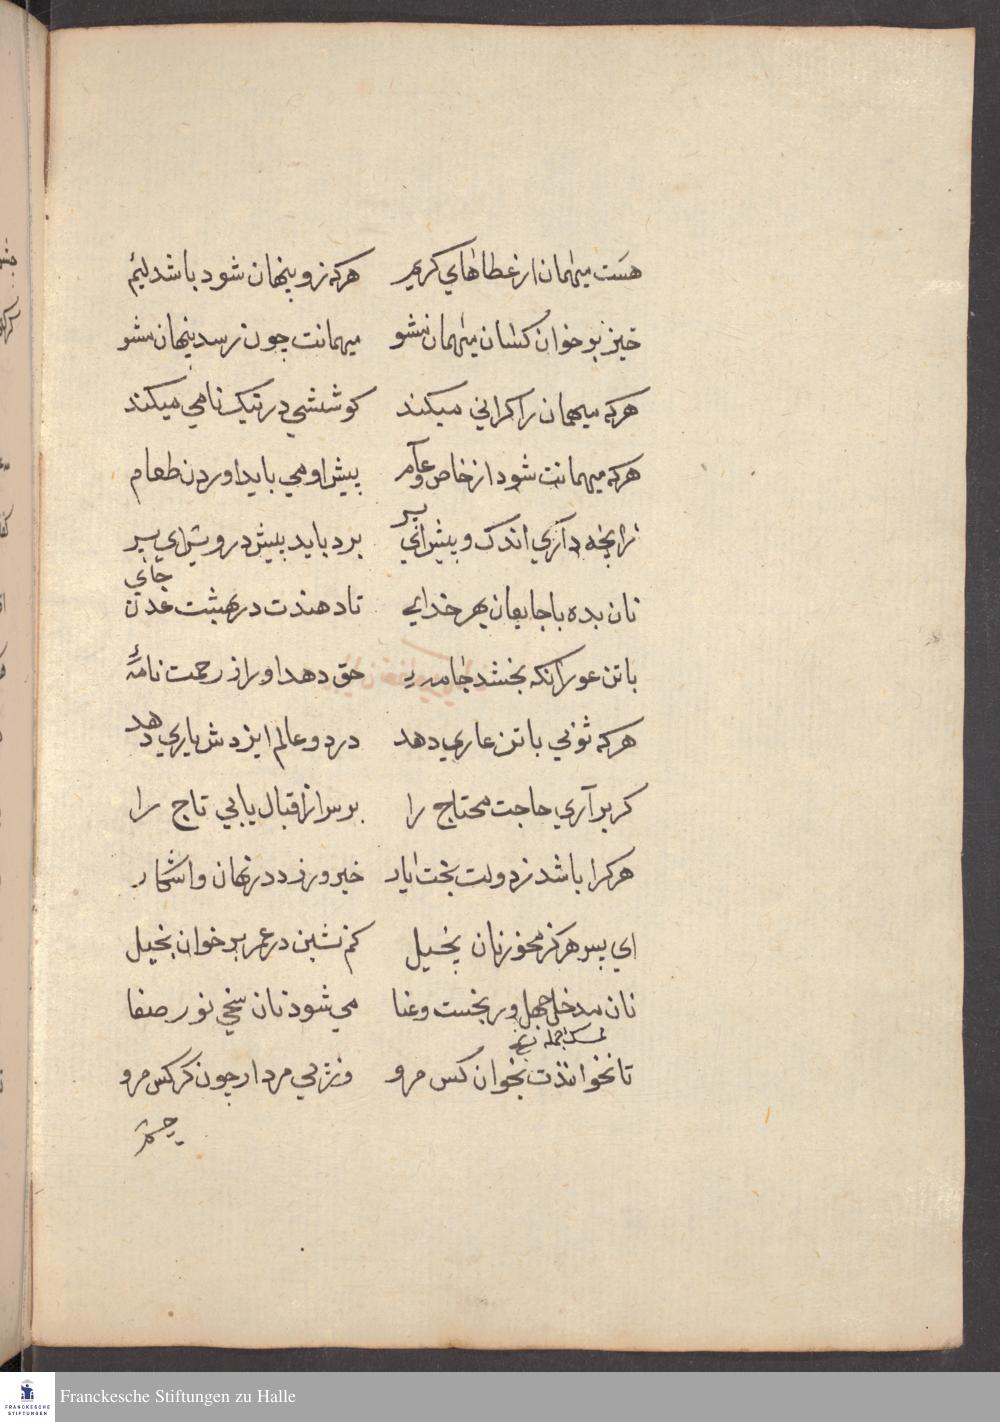 هست میهمان از عطاهای کریم هرکه زو پنهان شود باشد لئیم
خیز بر خوان کسان میهمان مشو میهمانت چون رسد پنهان مشو
هرکه میهمان را کرانی میکند کوششی در نیک نامی میکند
هرکه میهمانت شود از خاص و عام پیش او می باید اوردن طعام
زانچه داری اندک و بیش ای پسر برد باید پیش درویش ای پسر
نان بده با جایعان بهر خدای تا دهندت در بهشت عدن جای
با تن عور آنکه بخشد جامه حق دهد او را ز رحمت نامهٔ
هرکه ثوبی با تن عاری دهد در دو عالم ایزدش یاری دهد
کر برآری حاجت محتاج را بر سر از اقبال یابی تاج را
هرکرا باشد ز دولت بخت یار خیر ورزد در نهان و اشکار
ای پسر هرکز مخور نان بخیل کم نشین در عمر بر خوان بخیل
نان جمله رنجست و عنا می شود نان سخی نور صفا
تا نخوانندت بخوان کس مرو وز پی مردار چون کرکس مرو
Franckesche Stiftungen zu Halle
FRANCKESCHE
STIFTUNGEN